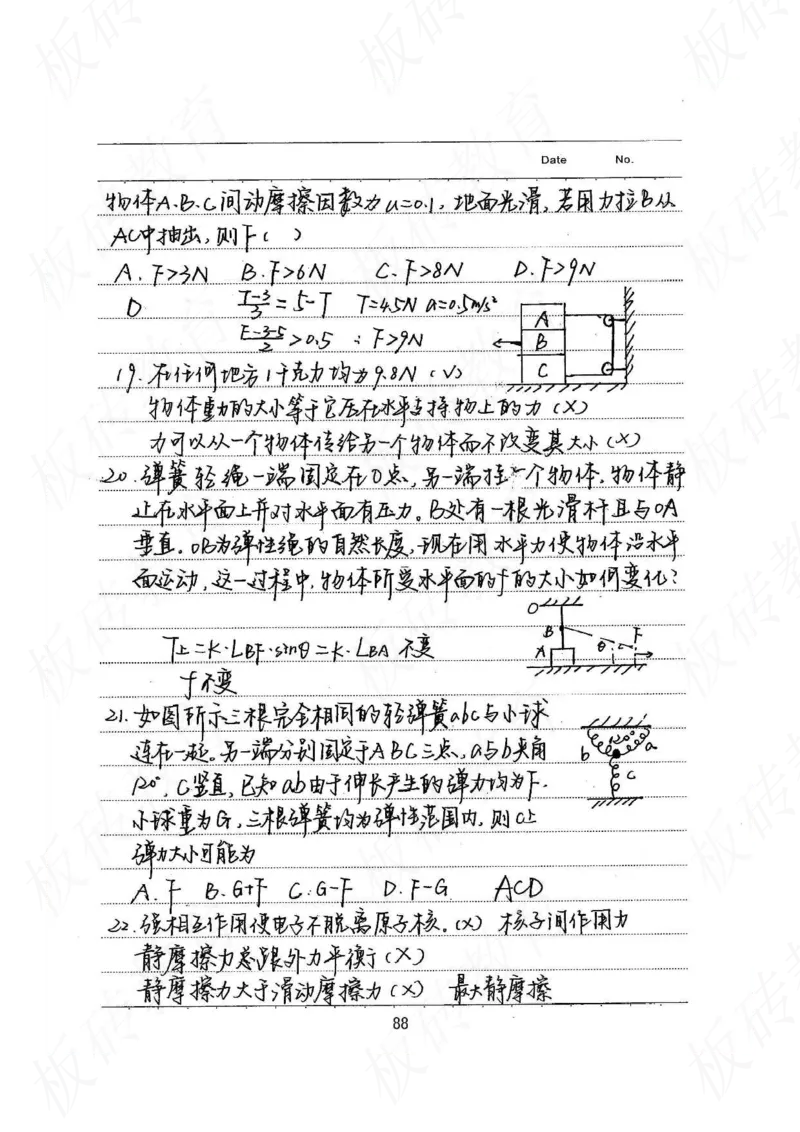 Date No.
物体A.B.C间动摩擦因数为u=0.1,地面光滑,若用力拉B从
AC中抽出,则F( )
A. F>3N B. F>6N C. F>8N D. F>9N
D T-3/3=5-T T=4.5N a=0.5m/s²
F-3-5/2>0.5 ∴F>9N
A
B
C
19. 在任何地方1千克力均为9.8N (√)
物体重力的大小等于它压在水平支持物上的力(×)
力可以从一个物体传给另一个物体而不改变其大小(×)
20. 弹簧轻绳一端固定在O点,另一端拴一个物体.物体静
止在水平面上并对水平面有压力。B处有一根光滑杆且与OA
垂直。OB为弹性绳的自然长度,现在用水平力使物体沿水平
面运动,这一过程中,物体所受水平面的f的大小如何变化?
O
B F
A θ
T上=K·LBF·sinθ=K·LBA 不变
f不变
21. 如图所示三根完全相同的轻弹簧abc与小球
连在一起。另一端分别固定于ABC三点、a与b夹角
120°,C竖直,已知ab由于伸长产生的弹力均为F.
小球重为G,三根弹簧均为弹性范围内,则C上
弹力大小可能为
b 120° a
c
A. F B. G+F C. G-F D. F-G ACD
22. 强相互作用使电子不脱离原子核。(×) 核子间作用力
静摩擦力总跟外力平衡(×)
静摩擦力大于滑动摩擦力(×) 最大静摩擦
88
板砖教育